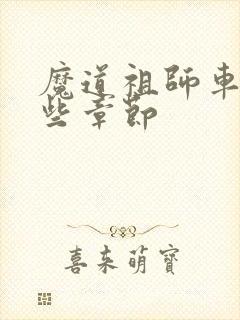 魔道祖師車
些章節
喜来萌寳